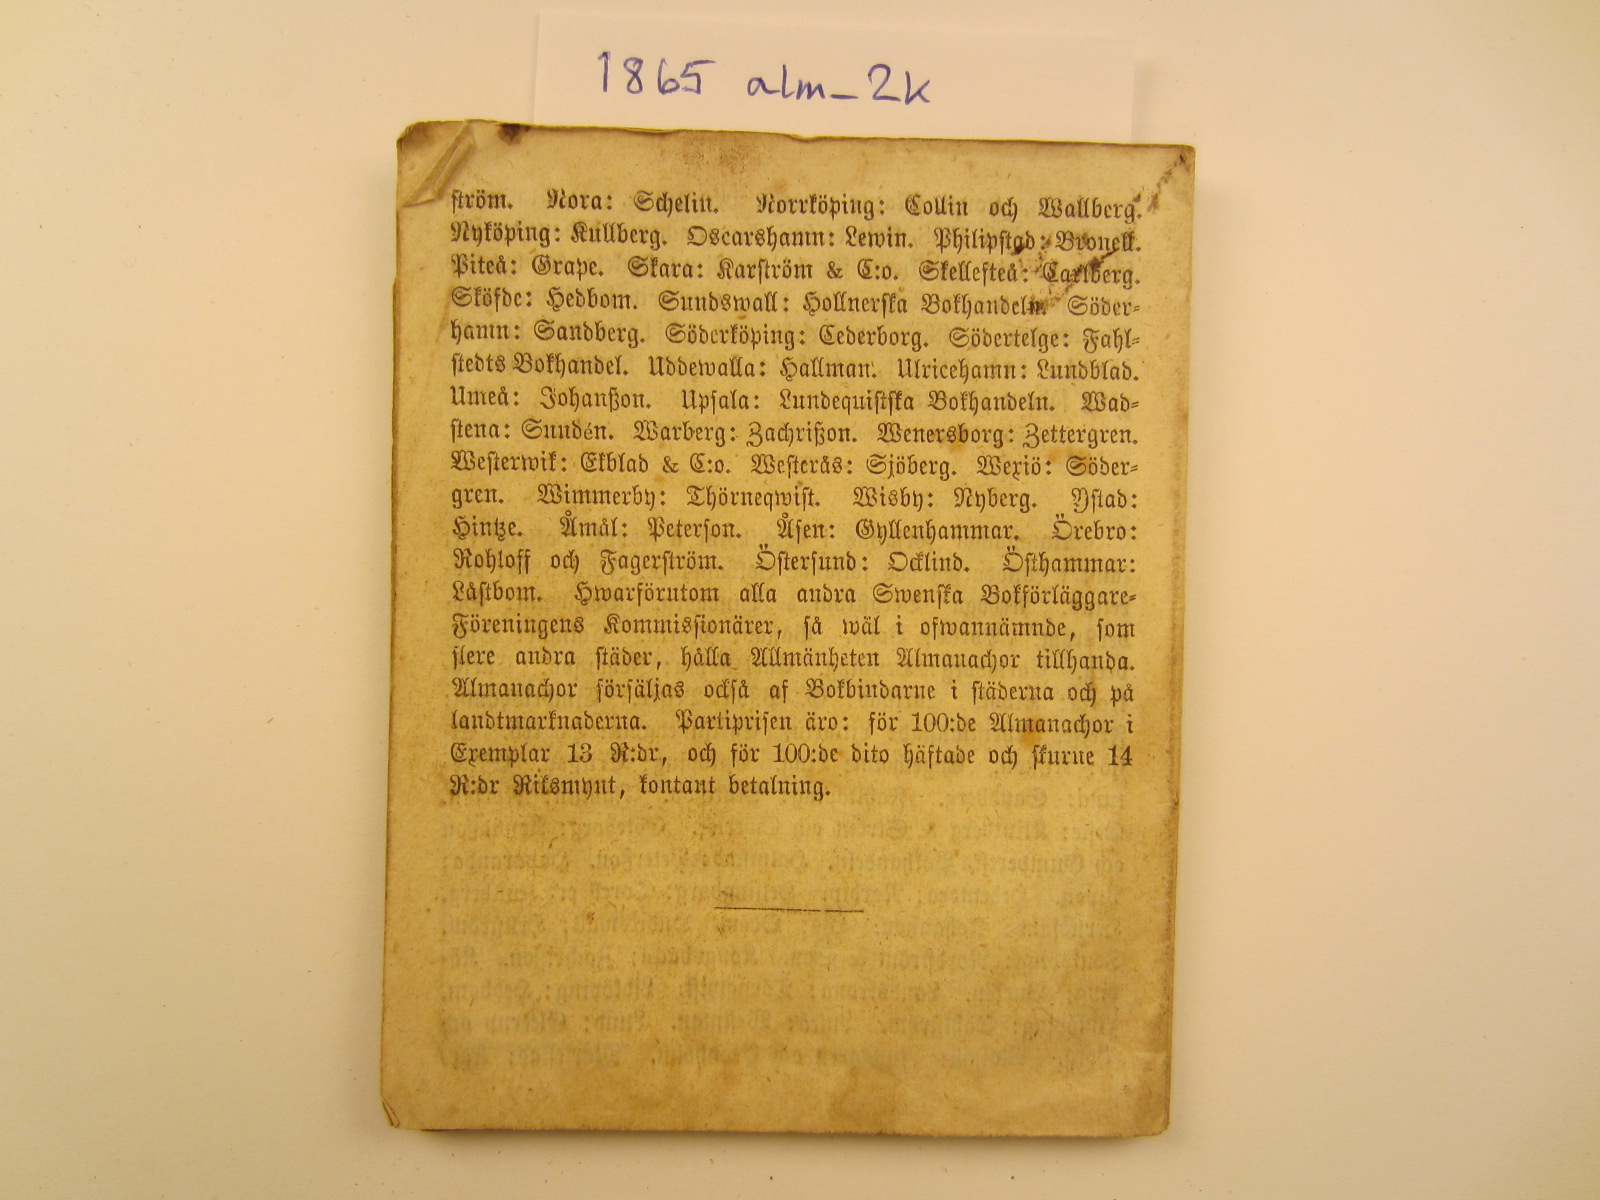 1865 alm_2k
ström. Nora: Schelin. Norrköping: Collin och Wallberg.
Nyköping: Kullberg. Oscarshamn: Lewin. Philipstad: Bronell.
Piteå: Grape. Skara: Karström & C:o. Skellefteå: Carlberg.
Sköfde: Hedbom. Sundswall: Hollnerska Bokhandeln. Söder-
hamn: Sandberg. Söderköping: Cederborg. Södertelge: Fahl-
stedts Bokhandel. Uddewalla: Hallman. Ulricehamn: Lundblad.
Umeå: Johanßon. Upsala: Lundequistska Bokhandeln. Wad-
stena: Sundén. Warberg: Zachrißon. Wenersborg: Zettergren.
Westerwik: Ekblad & C:o. Westerås: Sjöberg. Wexiö: Söder-
gren. Wimmerby: Thörneqwist. Wisby: Nyberg. Ystad:
Hintze. Åmål: Peterson. Åsen: Gyllenhammar. Örebro:
Rohloff och Fagerström. Östersund: Ocklind. Östhammar:
Låstbom. Hwarförutom alla andra Swenska Bokförläggare-
Föreningens Kommissionärer, så wäl i ofwannämnde, som
flere andra städer, hålla Allmänheten Almanachor tillhanda.
Almanachor försäljas också af Bokbindarne i städerna och på
landtmarknaderna. Partiprisen äro: för 100:de Almanachor i
Exemplar 13 R:dr, och för 100:de dito häftade och skurne 14
R:dr Riksmynt, kontant betalning.